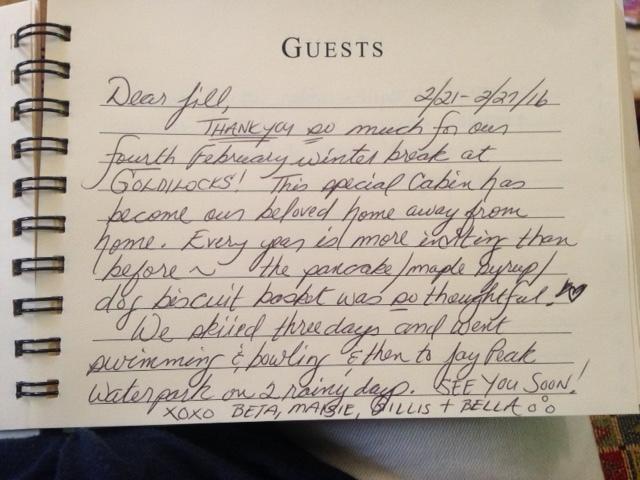 GUESTS
Dear Jill, 2/21-2/27/16
THANK YOU so much for our
fourth February winter break at
GOLDILOCKS! This special Cabin has
become our beloved home away from
home. Every year is more inviting than
before ~ the pancake/maple syrup/
dog biscuit basket was so thoughtful. ♡
We skiied three days and went
swimming & bowling & then to Jay Peak
Waterpark on 2 rainy days. SEE YOU SOON!
XOXO BETA, MAISIE, GILLIS + BELLA